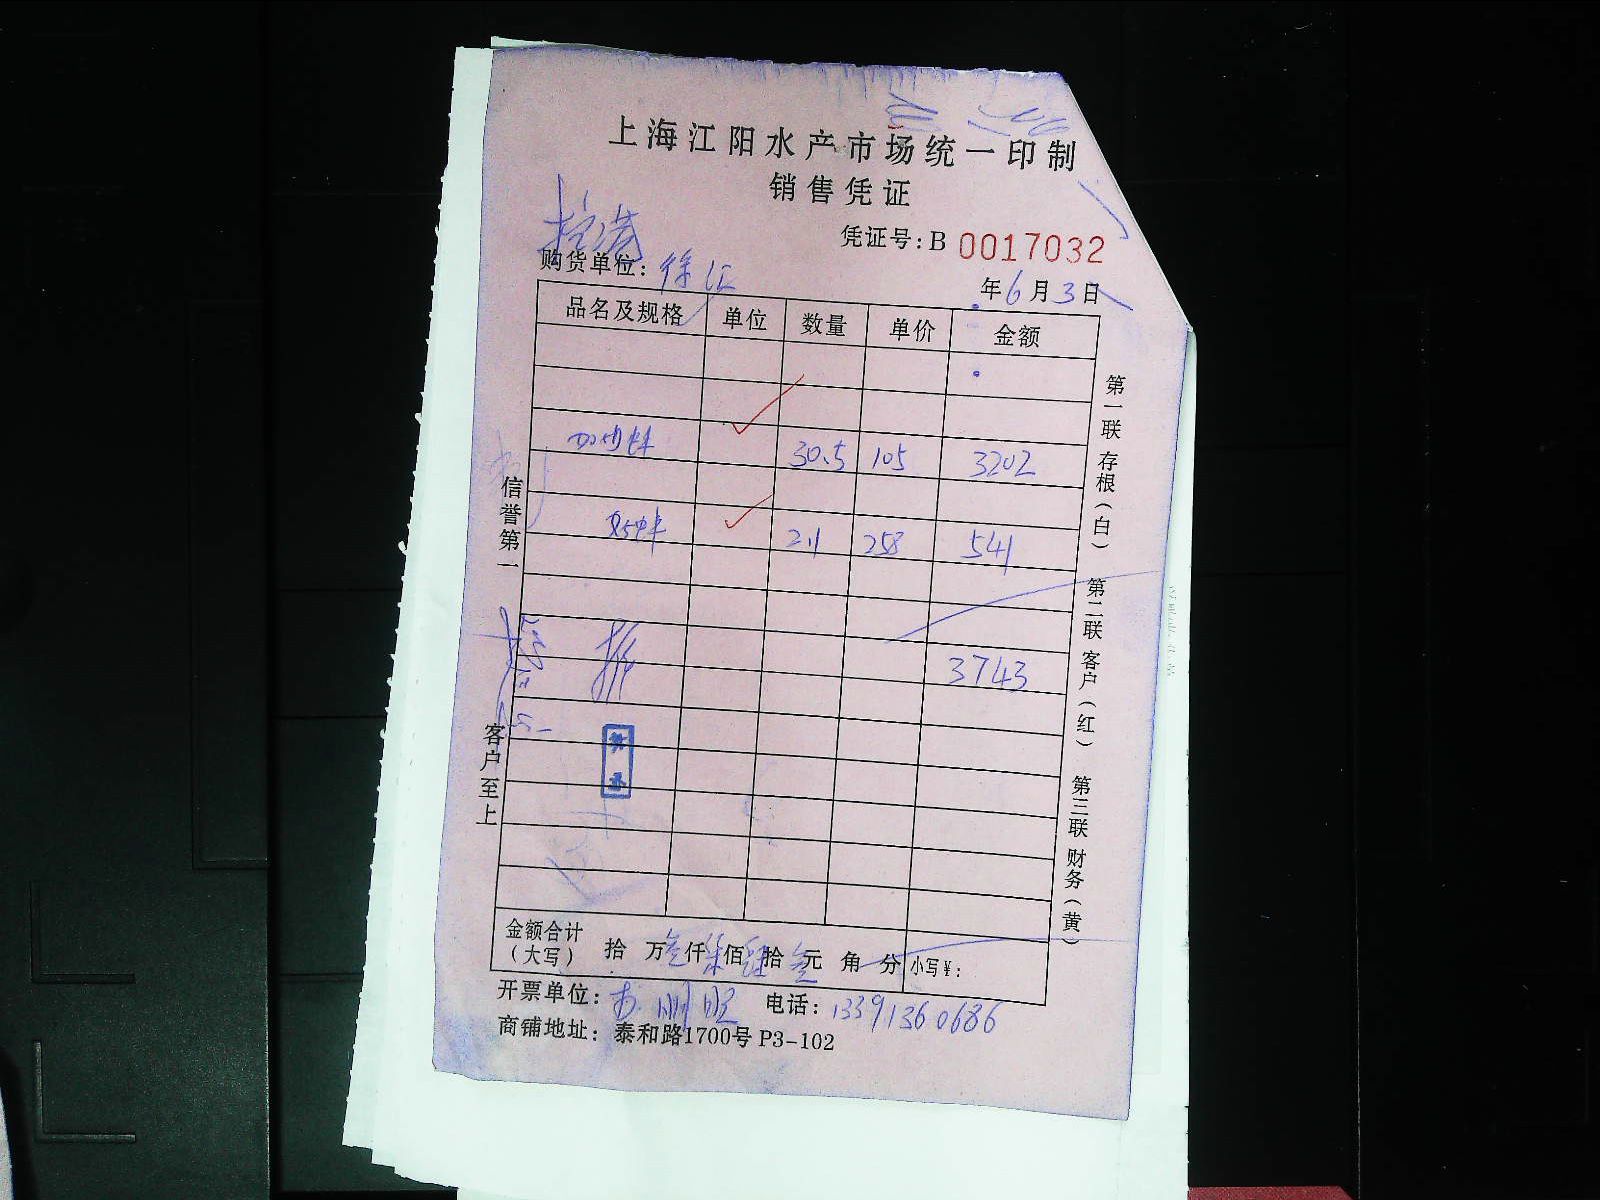 上海江阳水产市场统一印制
销售凭证
凭证号:B 0017032
购货单位: 徐汇
年6月3日
品名及规格 单位 数量 单价 金额
30.5 105 3202
2.1 258 541
3743
信誉第一 客户至上
第一联 存根(白) 第二联 客户(红) 第三联 财务(黄)
金额合计(大写) 拾 万叁仟柒佰肆拾叁元 角 分 小写¥:
开票单位: 电话: 13391360686
商铺地址: 泰和路1700号 P3-102